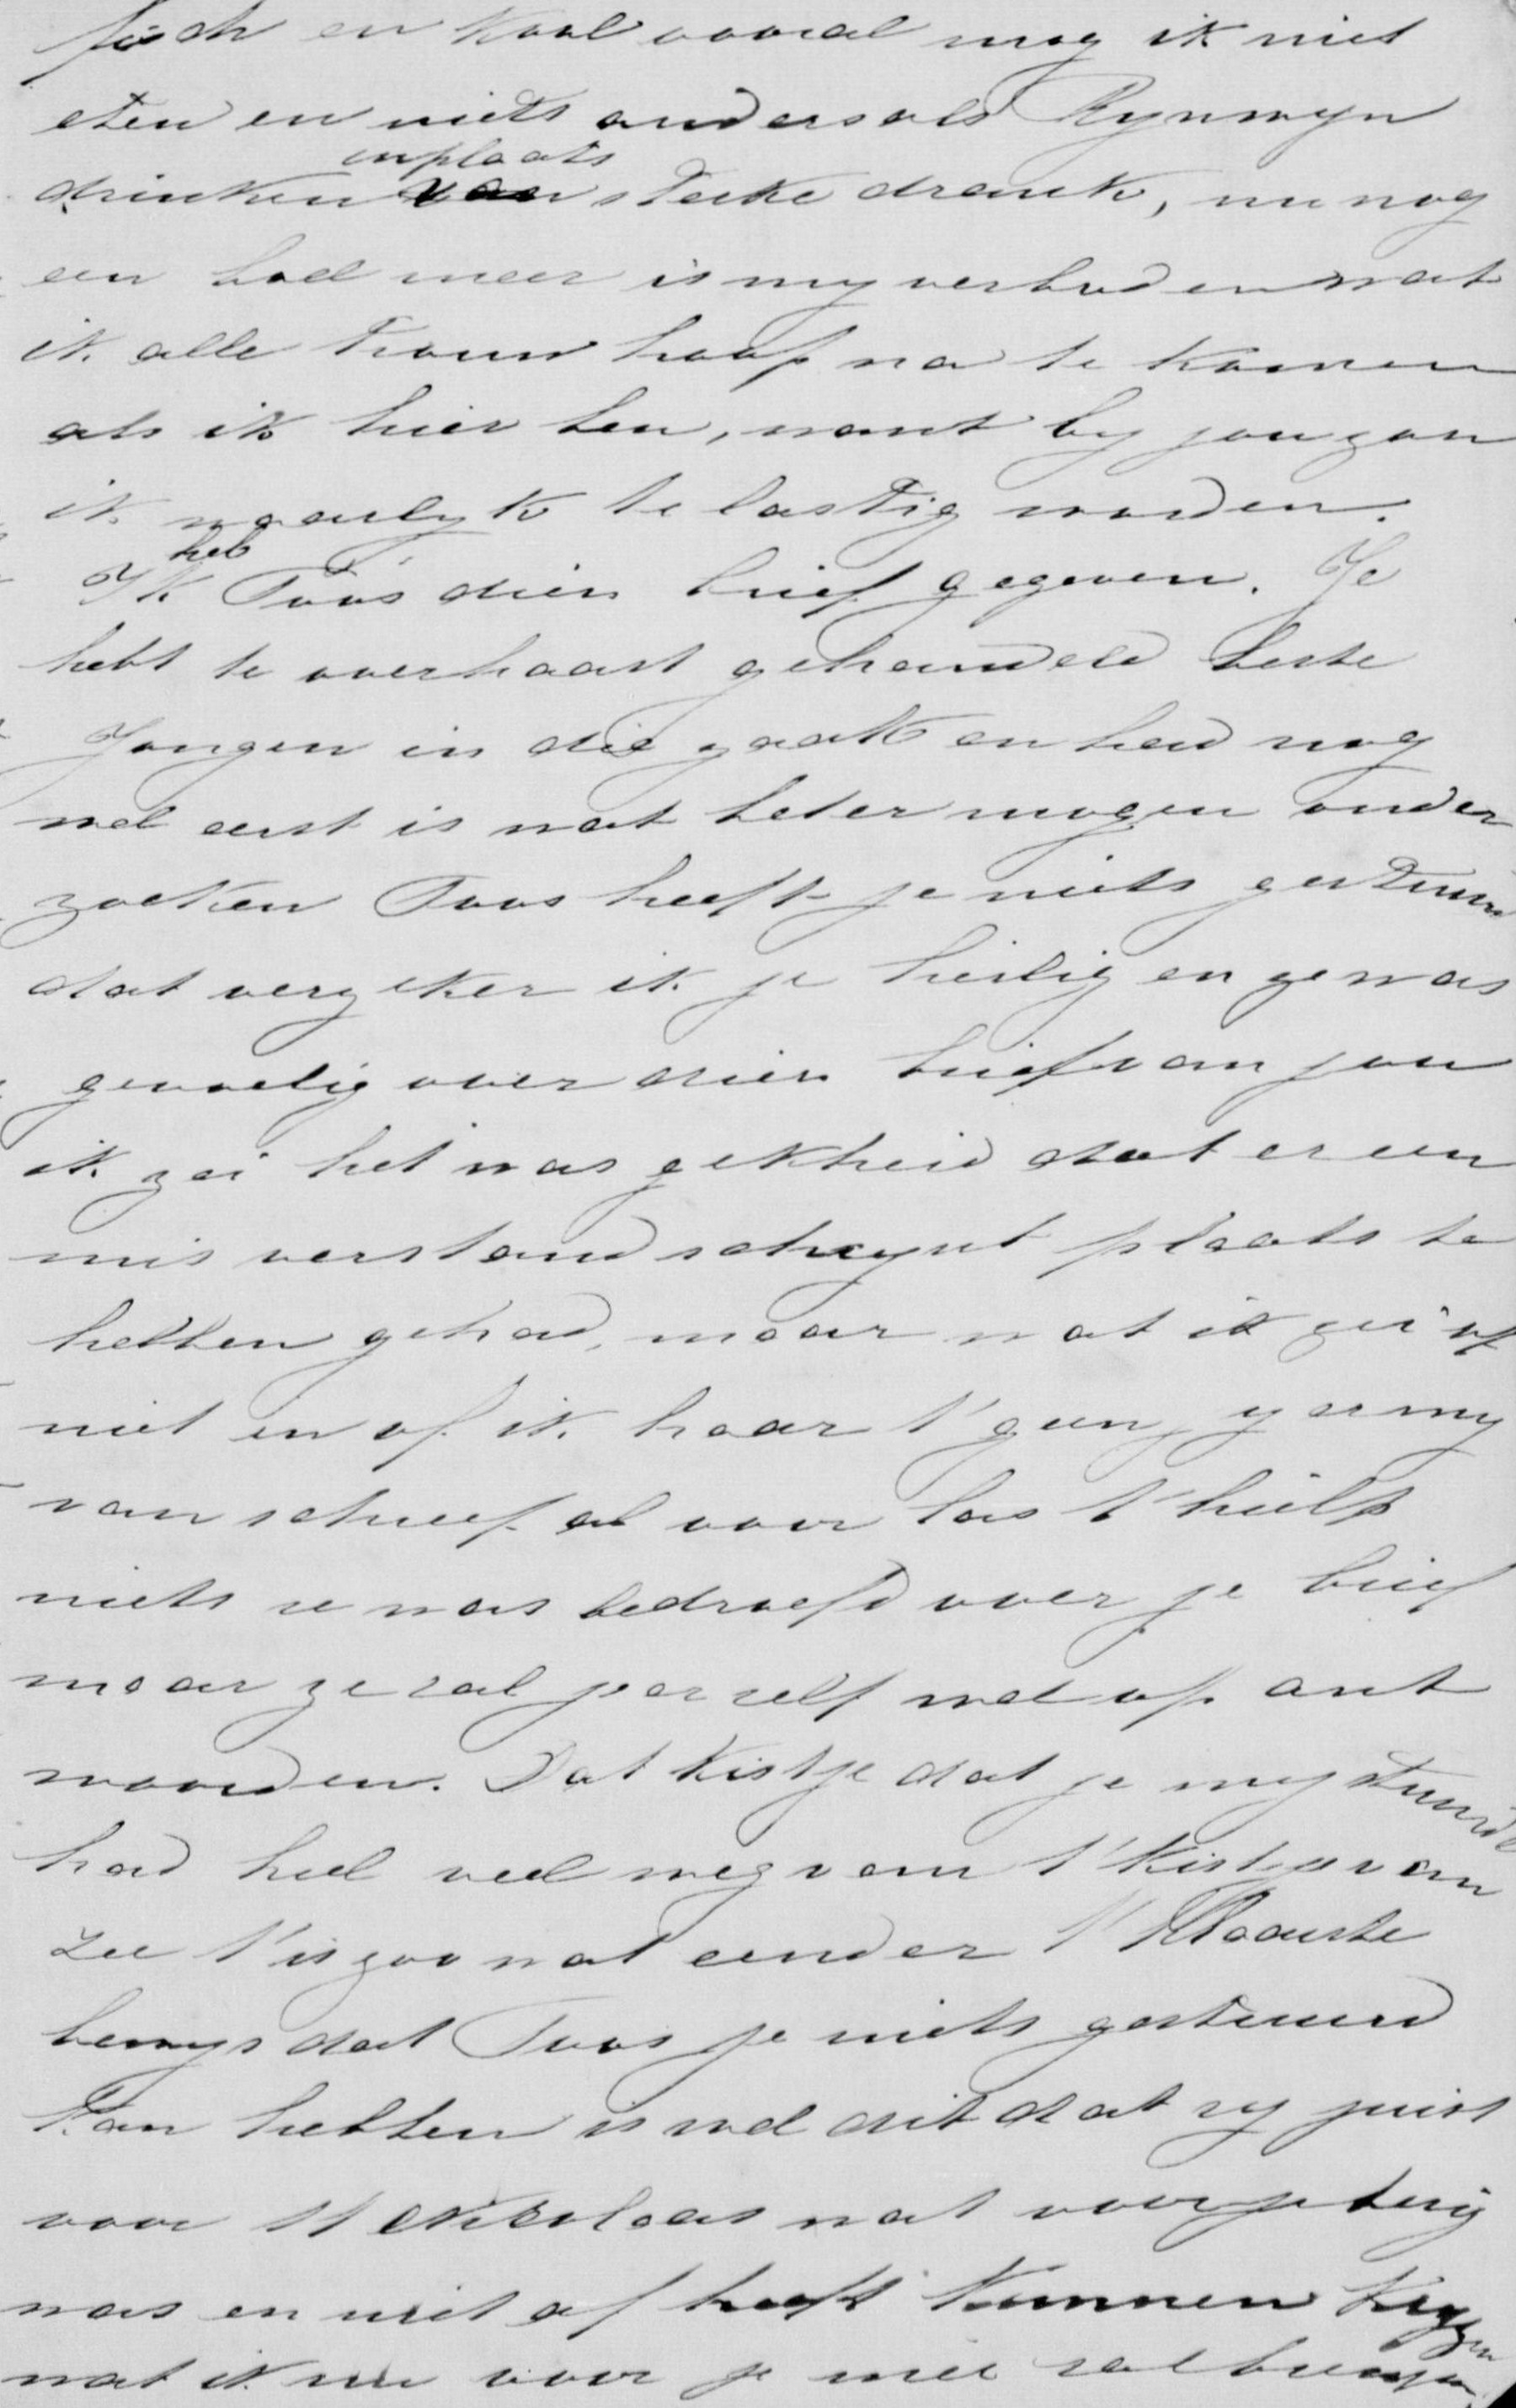 fisch en kool vooral mag ik niet
eten en niets anders als Rynwyn
drinken inplaats van sterke drank, nu nog
een boel meer is my verboden wat
ik alle trouw hoop na te komen
als ik hier ben, want by jou zou
ik waarlyk te lastig worden.
Ik heb Toos dien brief gegeven. Je
hebt te overhaast gehandeld beste
Jongen in die zaak en had nog
wel eerst is wat beter mogen onder
zoeken Toos heeft je niets gestuurd
dat verzeker ik je heilig en ze was
gevoelig over dien brief van jou
ik zei het was gekheid dat er een
mis verstand schynt plaats te
hebben gehad, maar wat ik zei of
niet en of ik haar t'geen je er my
van schreef al voor las t'hielp
niets ze was bedroefd over je brief
maar ze zal je er zelf wel op ant
woorden. Dat kistje dat je my stuurde
had heel veel weg van t'kistje van
zee t'is zoo wat eender t'klaarste
bewys dat Toos je niets gestuurd
kan hebben is wel dit dat zy juist
voor St Nikolaas wat voor je bezig
was en niet af heeft kunnen krygen
wat ik nu voor je mee zal brengen.